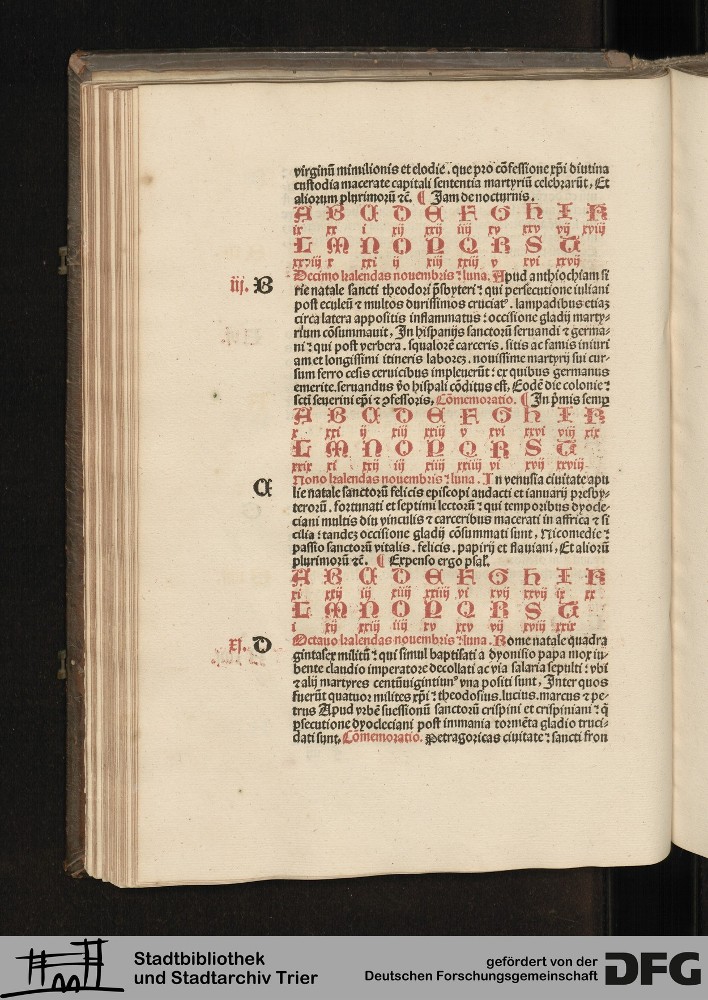 virginū minilionis et elodie. que pro cōfessione xp̄i diutina
custodia macerate capitali sententia martyriū celebrarūt, Et
aliorum plurimorū ⁊c. ¶ Jam de nocturnis.
A B C D E F G H I K
ix xx i xij xxij iiij xv xxv vij xviij
L M N O P Q R S T
xxviij x xxi ij xiij xxiij v xvi xxvij
iij. B Decimo kalendas nouembris : luna. Apud anthiochiam si
rie natale sancti theodori p̄sbyteri : qui persecutione iuliani
post eculeū ⁊ multos durissimos cruciatꝰ. lampadibus etiaꝫ
circa latera appositis inflammatus : occisione gladij marty-
rium cōsummauit, In hispanijs sanctorū seruandi ⁊ germa-
ni : qui post verbera. squalorē carceris. sitis ac famis iniuri
am et longissimi itineris laboreꝫ. nouissime martyrij sui cur-
sum ferro cesis ceruicibus impleuerūt : ex quibus germanus
emerite. seruandus v̄o hispali cōditus est, Eodē die colonie :
scti seuerini ep̄i ⁊ ꝯfessoris, Cōmemoratio. ¶ In p̄mis semꝑ
A B C D E F G H I K
x xxi ij xiij xxiij v xvi xxvi viij xix
L M N O P Q R S T
xxix xi xxij iij xiiij xxiiij vi xvij xxviij
C Nono kalendas nouembris : luna. In venusia ciuitate apu
lie natale sanctorū felicis episcopi audacti et ianuarij presby-
terorū. fortunati et septimi lectorū : qui temporibus dyocle-
ciani multis diu vinculis ⁊ carceribus macerati in affrica ⁊ si
cilia : tandeꝫ occisione gladij cōsummati sunt, Nicomedie :
passio sanctorū vitalis. felicis. papirij et flauiani, Et aliorū
plurimorū ⁊c. ¶ Expenso ergo psal.
A B C D E F G H I K
xi xxij iij xiiij xxiiij vi xvij xxvij ix xx
L M N O P Q R S T
i xij xxiij iiij xv xxv vij xviij xxix
xj. D Octauo kalendas nouembris : luna. Rome natale quadra
gintasex militū : qui simul baptisati a dyonisio papa mox iu-
bente claudio imperatore decollati ac via salaria sepulti : vbi
⁊ alij martyres centūuigintiunꝰ vna positi sunt, Inter quos
fuerūt quatuor milites xp̄i : theodosius. lucius. marcus ⁊ pe-
trus Apud vrbē suessionū sanctorū crispini et crispiniani : q̇
ꝑsecutione dyocleciani post immania tormēta gladio truci-
dati sunt, Cōmemoratio. Petragoricas ciuitate : sancti fron
Stadtbibliothek
und Stadtarchiv Trier
gefördert von der
Deutschen Forschungsgemeinschaft
DFG